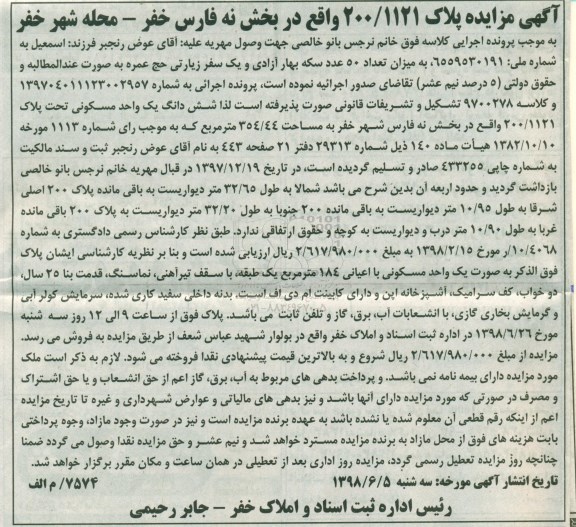 آگهی مزایده پلاک ۲۰۰/۱۱۲۱ واقع در بخش نه فارس خفر – محله شهر خفر
به موجب پرونده اجرایی کلاسه فوق خانم نرجس بانو خالصی جهت وصول مهریه علیه: آقای عوض رنجبر فرزند: اسمعیل به
شماره ملی: ۶۵۵۹۵۳۰۱۹۱، به میزان تعداد ۵۰ عدد سکه بهار آزادی و یک سفر زیارتی حج عمره به صورت عندالمطالبه و
حقوق دولتی (۵ درصد نیم عشر) تقاضای صدور اجرائیه نموده است، پرونده اجرائی به شماره ۱۳۹۷۰۴۰۱۱۱۲۳۰۰۲۹۵۷
و کلاسه ۹۷۰۰۲۷۸ تشکیل و تشریفات قانونی صورت پذیرفته است لذا شش دانگ یک واحد مسکونی تحت پلاک
۲۰۰/۱۱۲۱ واقع در بخش نه فارس شهر خفر به مساحت ۳۵۴/۴۴ مترمربع که به موجب رای شماره ۱۱۱۳ مورخه
۱۳۸۲/۱۰/۱۰ هیأت ماده ۱۴۰ ذیل شماره ۲۹۳۱۳ دفتر ۲۱ صفحه ۴۴۳ به نام آقای عوض رنجبر ثبت و سند مالکیت
به شماره چاپی ۴۳۳۲۵۵ صادر و تسلیم گردیده است، در تاریخ ۱۳۹۷/۱۲/۱۹ در قبال مهریه خانم نرجس بانو خالصی
بازداشت گردید و حدود اربعه آن بدین شرح می باشد شمالا به طول ۳۲/۶۵ متر دیواریست به باقی مانده پلاک ۲۰۰ اصلی
شرقا به طول ۱۰/۹۵ متر دیواریست به باقی مانده ۲۰۰ جنوبا به طول ۳۲/۲۰ متر دیواریست به پلاک ۲۰۰ باقی مانده
غربا به طول ۱۰/۹۰ متر درب و دیواریست به کوچه و حقوق ارتفاقی ندارد. طبق نظر کارشناس رسمی دادگستری به شماره
۱۰/۴۰۶۸/ر مورخ ۱۳۹۸/۲/۱۵ به مبلغ ۲/۶۱۷/۹۸۰/۰۰۰ ریال ارزیابی شده است و بنا بر نظریه کارشناسی ایشان پلاک
فوق الذکر به صورت یک واحد مسکونی با اعیانی ۱۸۴ مترمربع یک طبقه، با سقف تیرآهنی، نماسنگ، قدمت بنا ۲۵ سال،
دو خواب، کف سرامیک، آشپزخانه اپن و دارای کابینت ام دی اف است. بدنه داخلی سفید کاری شده، سرمایش کولر آبی
و گرمایش بخاری گازی، با انشعابات آب، برق، گاز و تلفن ثابت می باشد. پلاک فوق از ساعت ۹ الی ۱۲ روز سه شنبه
مورخ ۱۳۹۸/۶/۲۶ در اداره ثبت اسناد و املاک خفر واقع در بولوار شهید عباس شعف از طریق مزایده به فروش می رسد.
مزایده از مبلغ ۲/۶۱۷/۹۸۰/۰۰۰ ریال شروع و به بالاترین قیمت پیشنهادی نقدا فروخته می شود. لازم به ذکر است ملک
مورد مزایده دارای بیمه نامه نمی باشد. و پرداخت بدهی های مربوط به آب، برق، گاز اعم از حق انشعاب و یا حق اشتراک
و مصرف در صورتی که مورد مزایده دارای آنها باشد و نیز بدهی های مالیاتی و عوارض شهرداری و غیره تا تاریخ مزایده
اعم از اینکه رقم قطعی آن معلوم شده یا نشده باشد به عهده برنده مزایده است و نیز در صورت وجود مازاد، وجوه پرداختی
بابت هزینه های فوق از محل مازاد به برنده مزایده مسترد خواهد شد و نیم عشر و حق مزایده نقدا وصول می گردد ضمنا
چنانچه روز مزایده تعطیل رسمی گردد، مزایده روز اداری بعد از تعطیلی در همان ساعت و مکان مقرر برگزار خواهد شد.
تاریخ انتشار آگهی مورخه: سه شنبه ۱۳۹۸/۶/۵
۷۵۷۴/ م الف
رئیس اداره ثبت اسناد و املاک خفر – جابر رحیمی